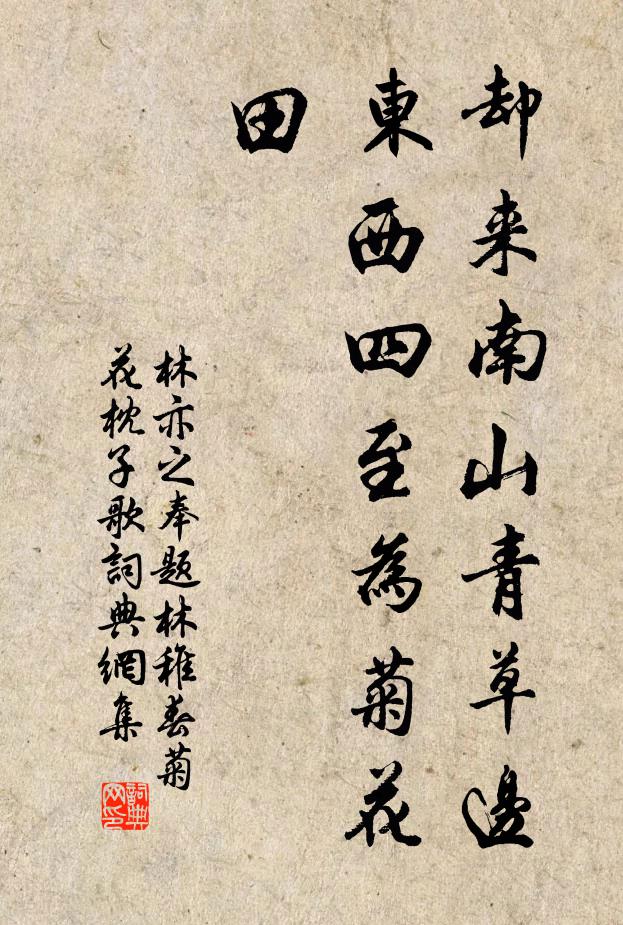 却来南山青草邊
東西四至為菊花
田
林亦之奉题林稚春菊
花枕子歌詞典網集
詞典网印